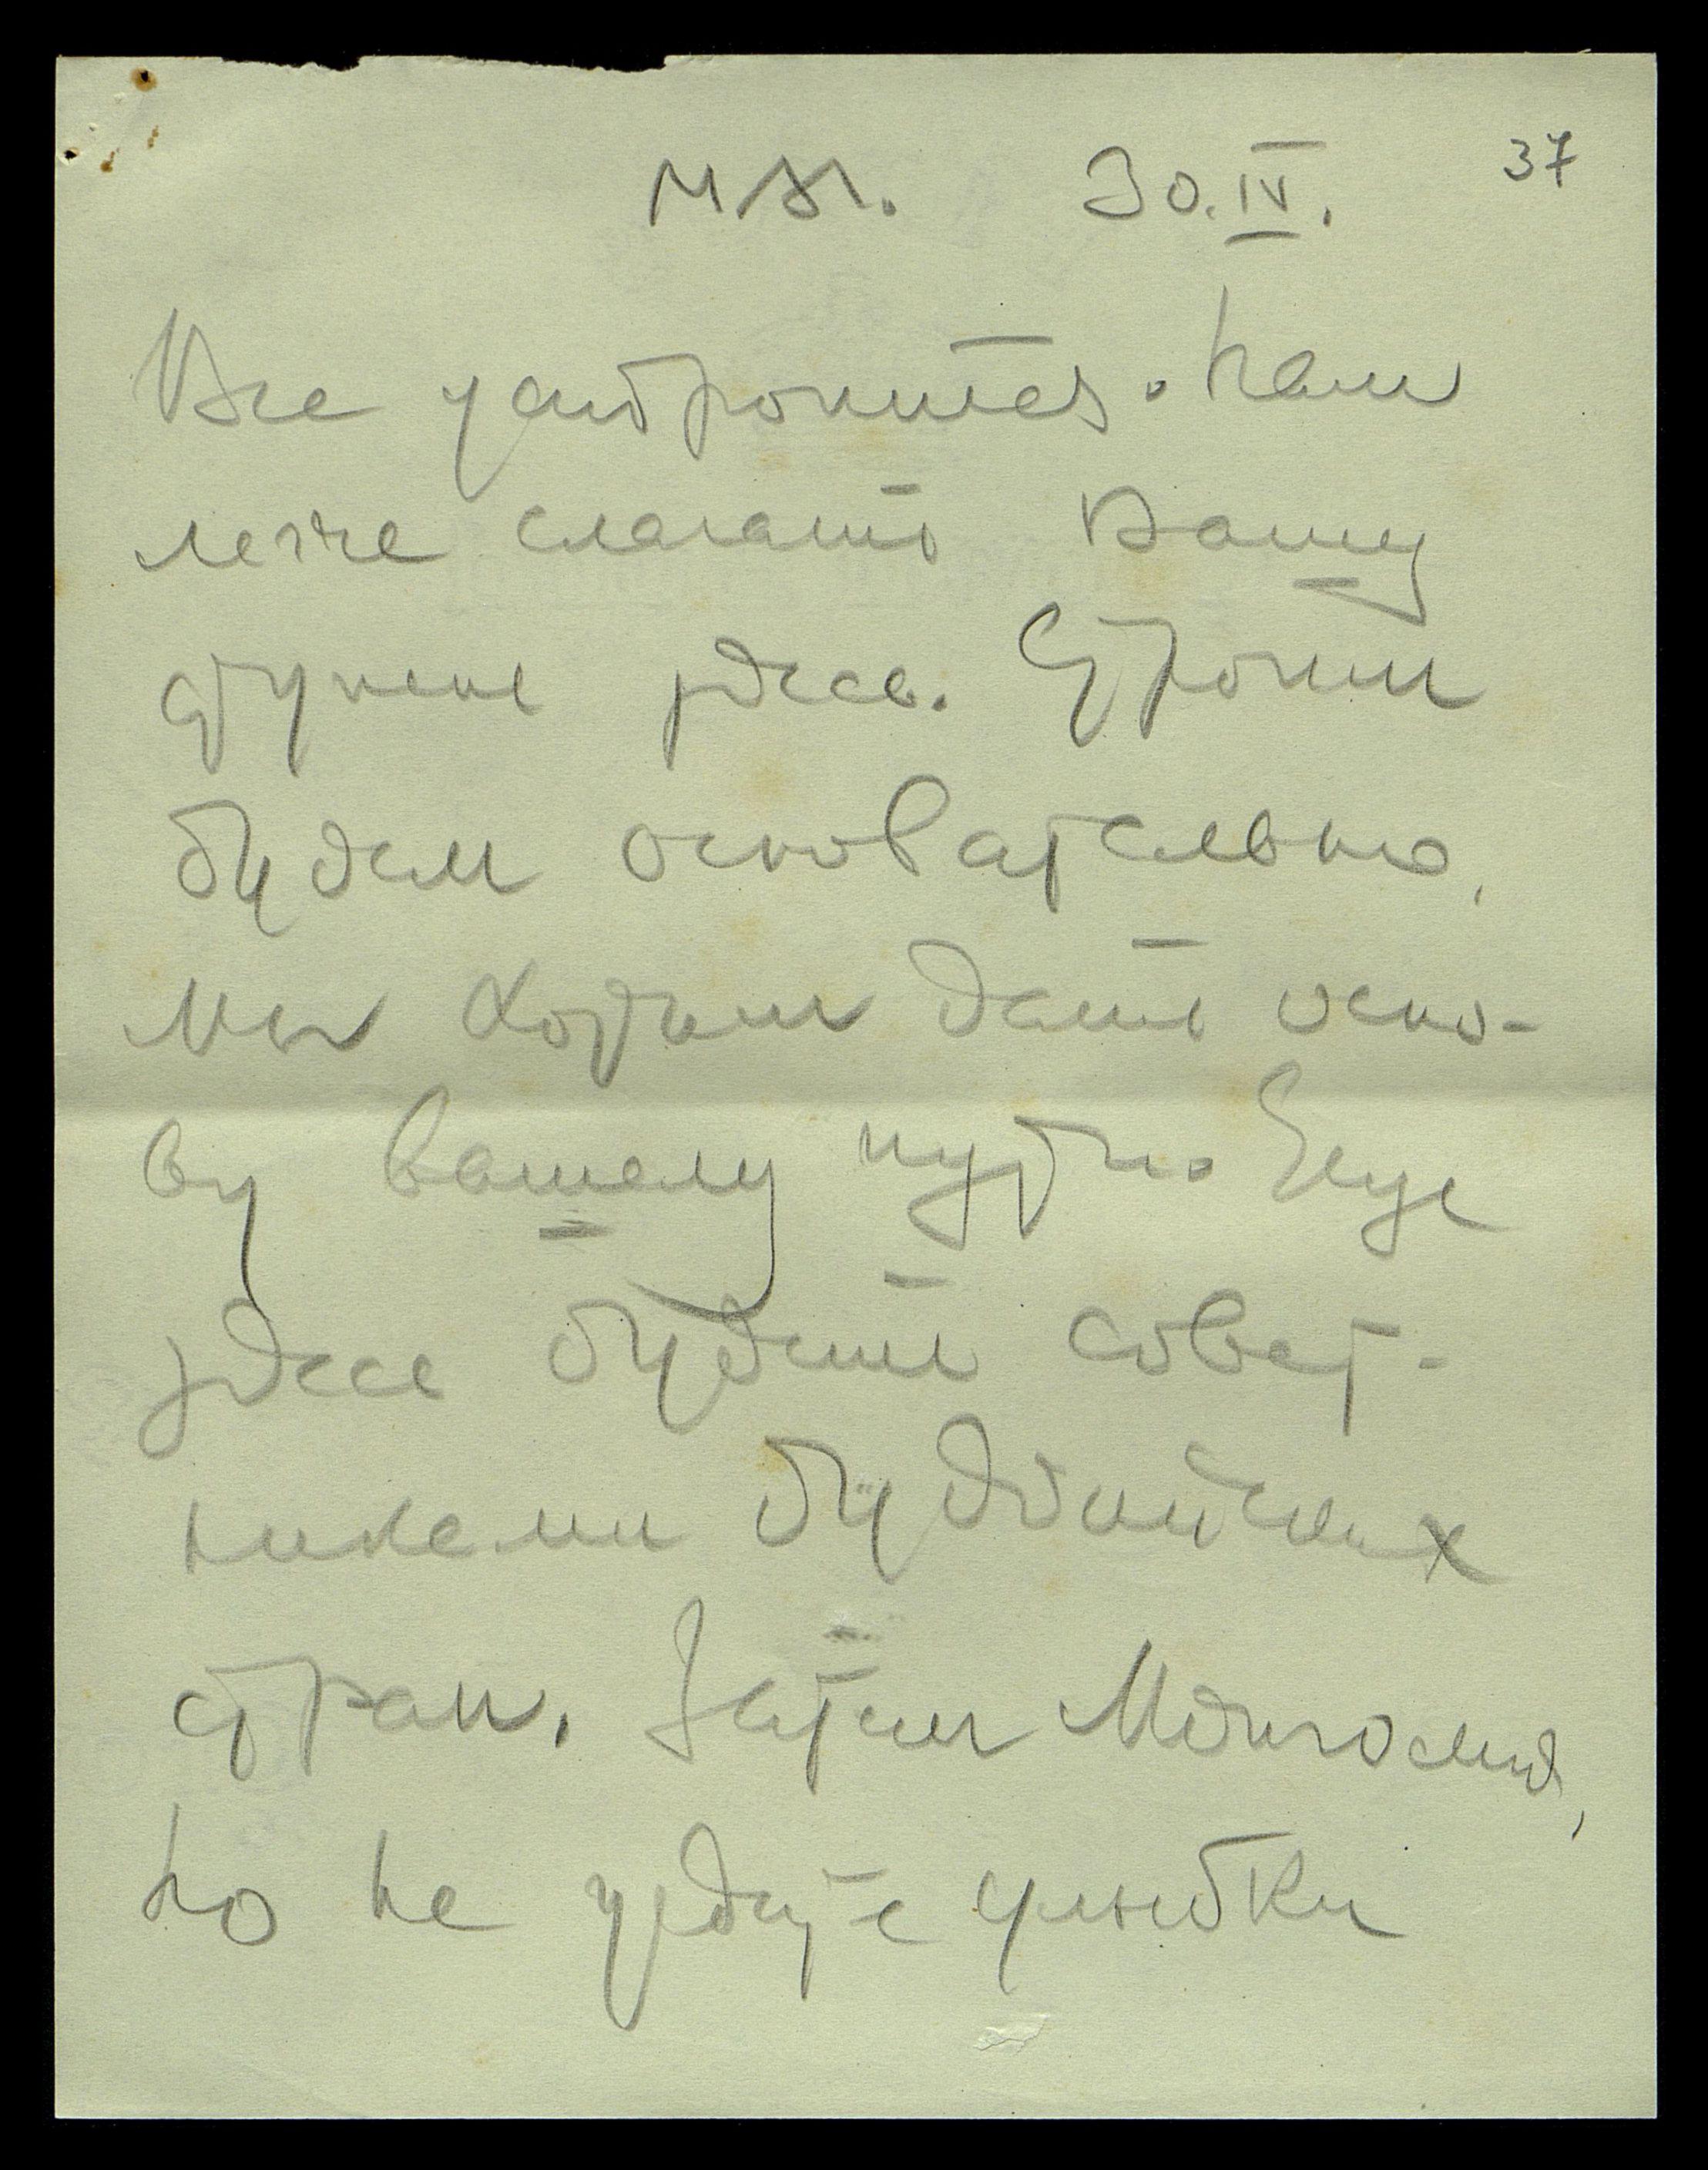 МЯ. 30.IV. 37
Все устроится. Нам
легче слагать Вашу
ступень здесь. Строим
будем основательно,
мы хотим дать осно-
ву вашему пути. Еще
здесь будете совет-
никами буддийских
стран. Затем Монголия,
но не ждите улыбки